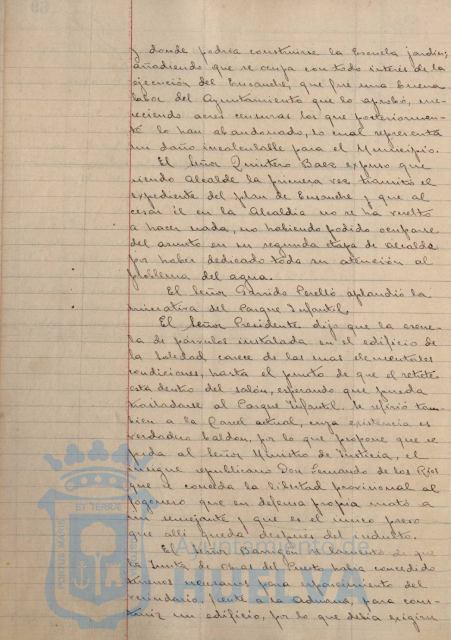 y donde podría construirse la Escuela jardín;
añadiendo que se ocupa con todo interés de la
ejecución del Ensanche, que fue una buena
labor del Ayuntamiento que lo aprobó, me-
reciendo acres censuras los que posteriormen-
te lo han abandonado, lo cual representa
un daño incalculable para el Municipio.
El Señor Quintero Baez expuso que
siendo Alcalde la primera vez tramitó el
expediente del plan de Ensanche y que al
cesar él en la Alcaldía no se ha vuelto
a hacer nada, no habiendo podido ocuparse
del asunto en su segunda etapa de alcalde
por haber dedicado toda su atención al
problema del agua.
El Señor Garrido Perelló aplaudió la
iniciativa del Parque Infantil.
El Señor Presidente dijo que la escue-
la de párvulos instalada en el edificio de
la Soledad carece de las mas elementales
condiciones, hasta el punto de que el retrete
está dentro del salón, esperando que pueda
trasladarse al Parque Infantil. Se refirió tam-
bien a la Carcel actual, cuya existencia es
verdadero baldon, por lo que propone que se
pida al Señor Ministro de Justicia, el
insigne republicano Don Fernando de los Rios
que se conceda la libertad provisional al
fogonero que en defensa propia mató a
un semejante y que es el unico preso
que alli queda después del indulto.
El Señor Barrigón de que
la Junta de obras del Puerto había concedido
terrenos necesarios para esparcimiento del
vecindario, frente a la Aduana, para cons-
truir un edificio, por lo que debía exigirse
Ayuntamiento de
HUELVA
PORTUS MARIS
ET TERRAE